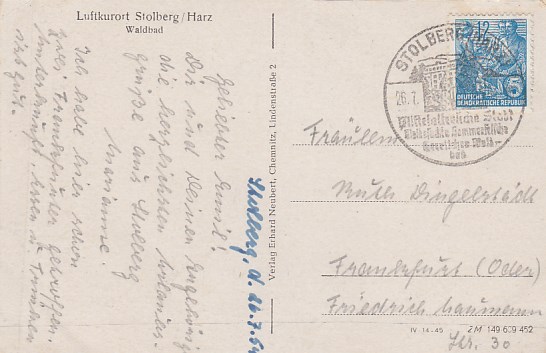 Luftkurort Stolberg/Harz
Waldbad
Stolberg, d. 26.7.54
Geliebter Emil!
Dir und Deinen Angehörig.
die herzlichsten Urlaubs-
grüße aus Stolberg
Marianne.
Ich habe hier schon
zwei Frankfurter getroffen.
Unterkunft, Essen u. Trinken
ist gut.
Verlag Erhard Neubert, Chemnitz, Lindenstraße 2
STOLBERG (HARZ)
26.7.
Mittelalterliche Stadt
Vielbesuchte Sommerfrische
Herrliches Wald-
bad
12
DEUTSCHE
DEMOKRATISCHE REPUBLIK
Fräulein
Ruth Dingelstädt
Frankfurt (Oder)
Friedrich Naumann
Str. 30
IV-14-45 ZM 149 609 452